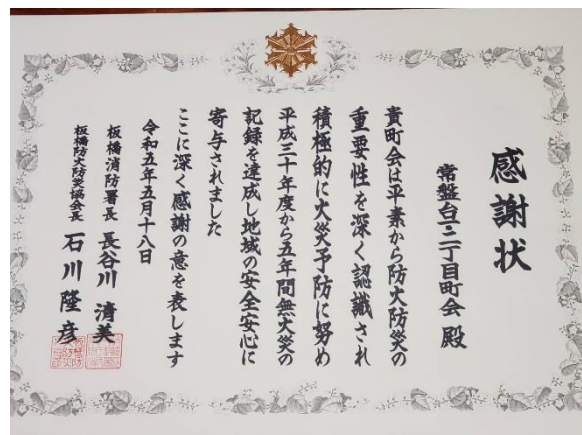 感謝状
常盤台一・二丁目町会 殿
貴町会は平素から防火防災の
重要性を深く認識され
積極的に火災予防に努め
平成三十年度から五年間無火災の
記録を達成し地域の安全安心に
寄与されました
ここに深く感謝の意を表します
令和五年五月十八日
板橋消防署長 長谷川 清美
板橋防火防災協会長 石川 隆彦